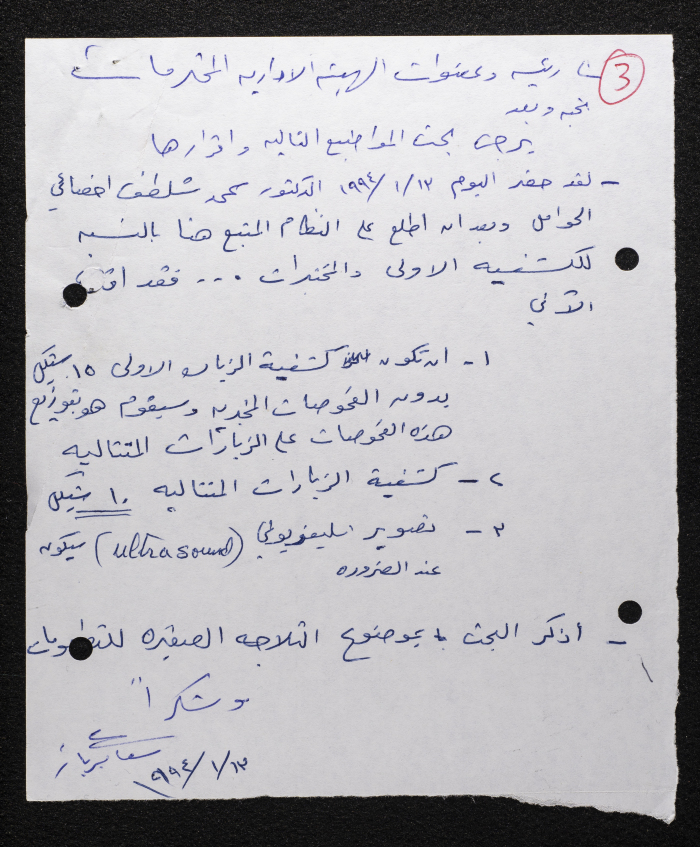 3
رئيسة وعضوات الهيئه الاداريه المحترمات
تحيه وبعد
يرجى بحث المواضيع التاليه واقرارها
- لقد حضر اليوم ١٣/١/١٩٩٤ الدكتور محمد شلطف اخصائي
الحوامل وبعد ان اطلع على النظام المتبع هنا بالنسبه
للكشفيه الاولى والمختبرات ... فقد اقترح
الآتي
١- ان تكون كشفية الزياره الاولى ١٥ شيكل
بدون الفحوصات المخبريه وسيقوم هو بتوزيع
هذه الفحوصات على الزيارات المتتاليه
٢- كشفية الزيارات المتتاليه ١٠ شيكل
٣- تصوير تليفزيوني (ultrasound) سيكون
عند الضروره
- أذكر البحث بموضوع الثلاجه الصغيره للتطعومات
وشكراً
١٣/١/١٩٩٤